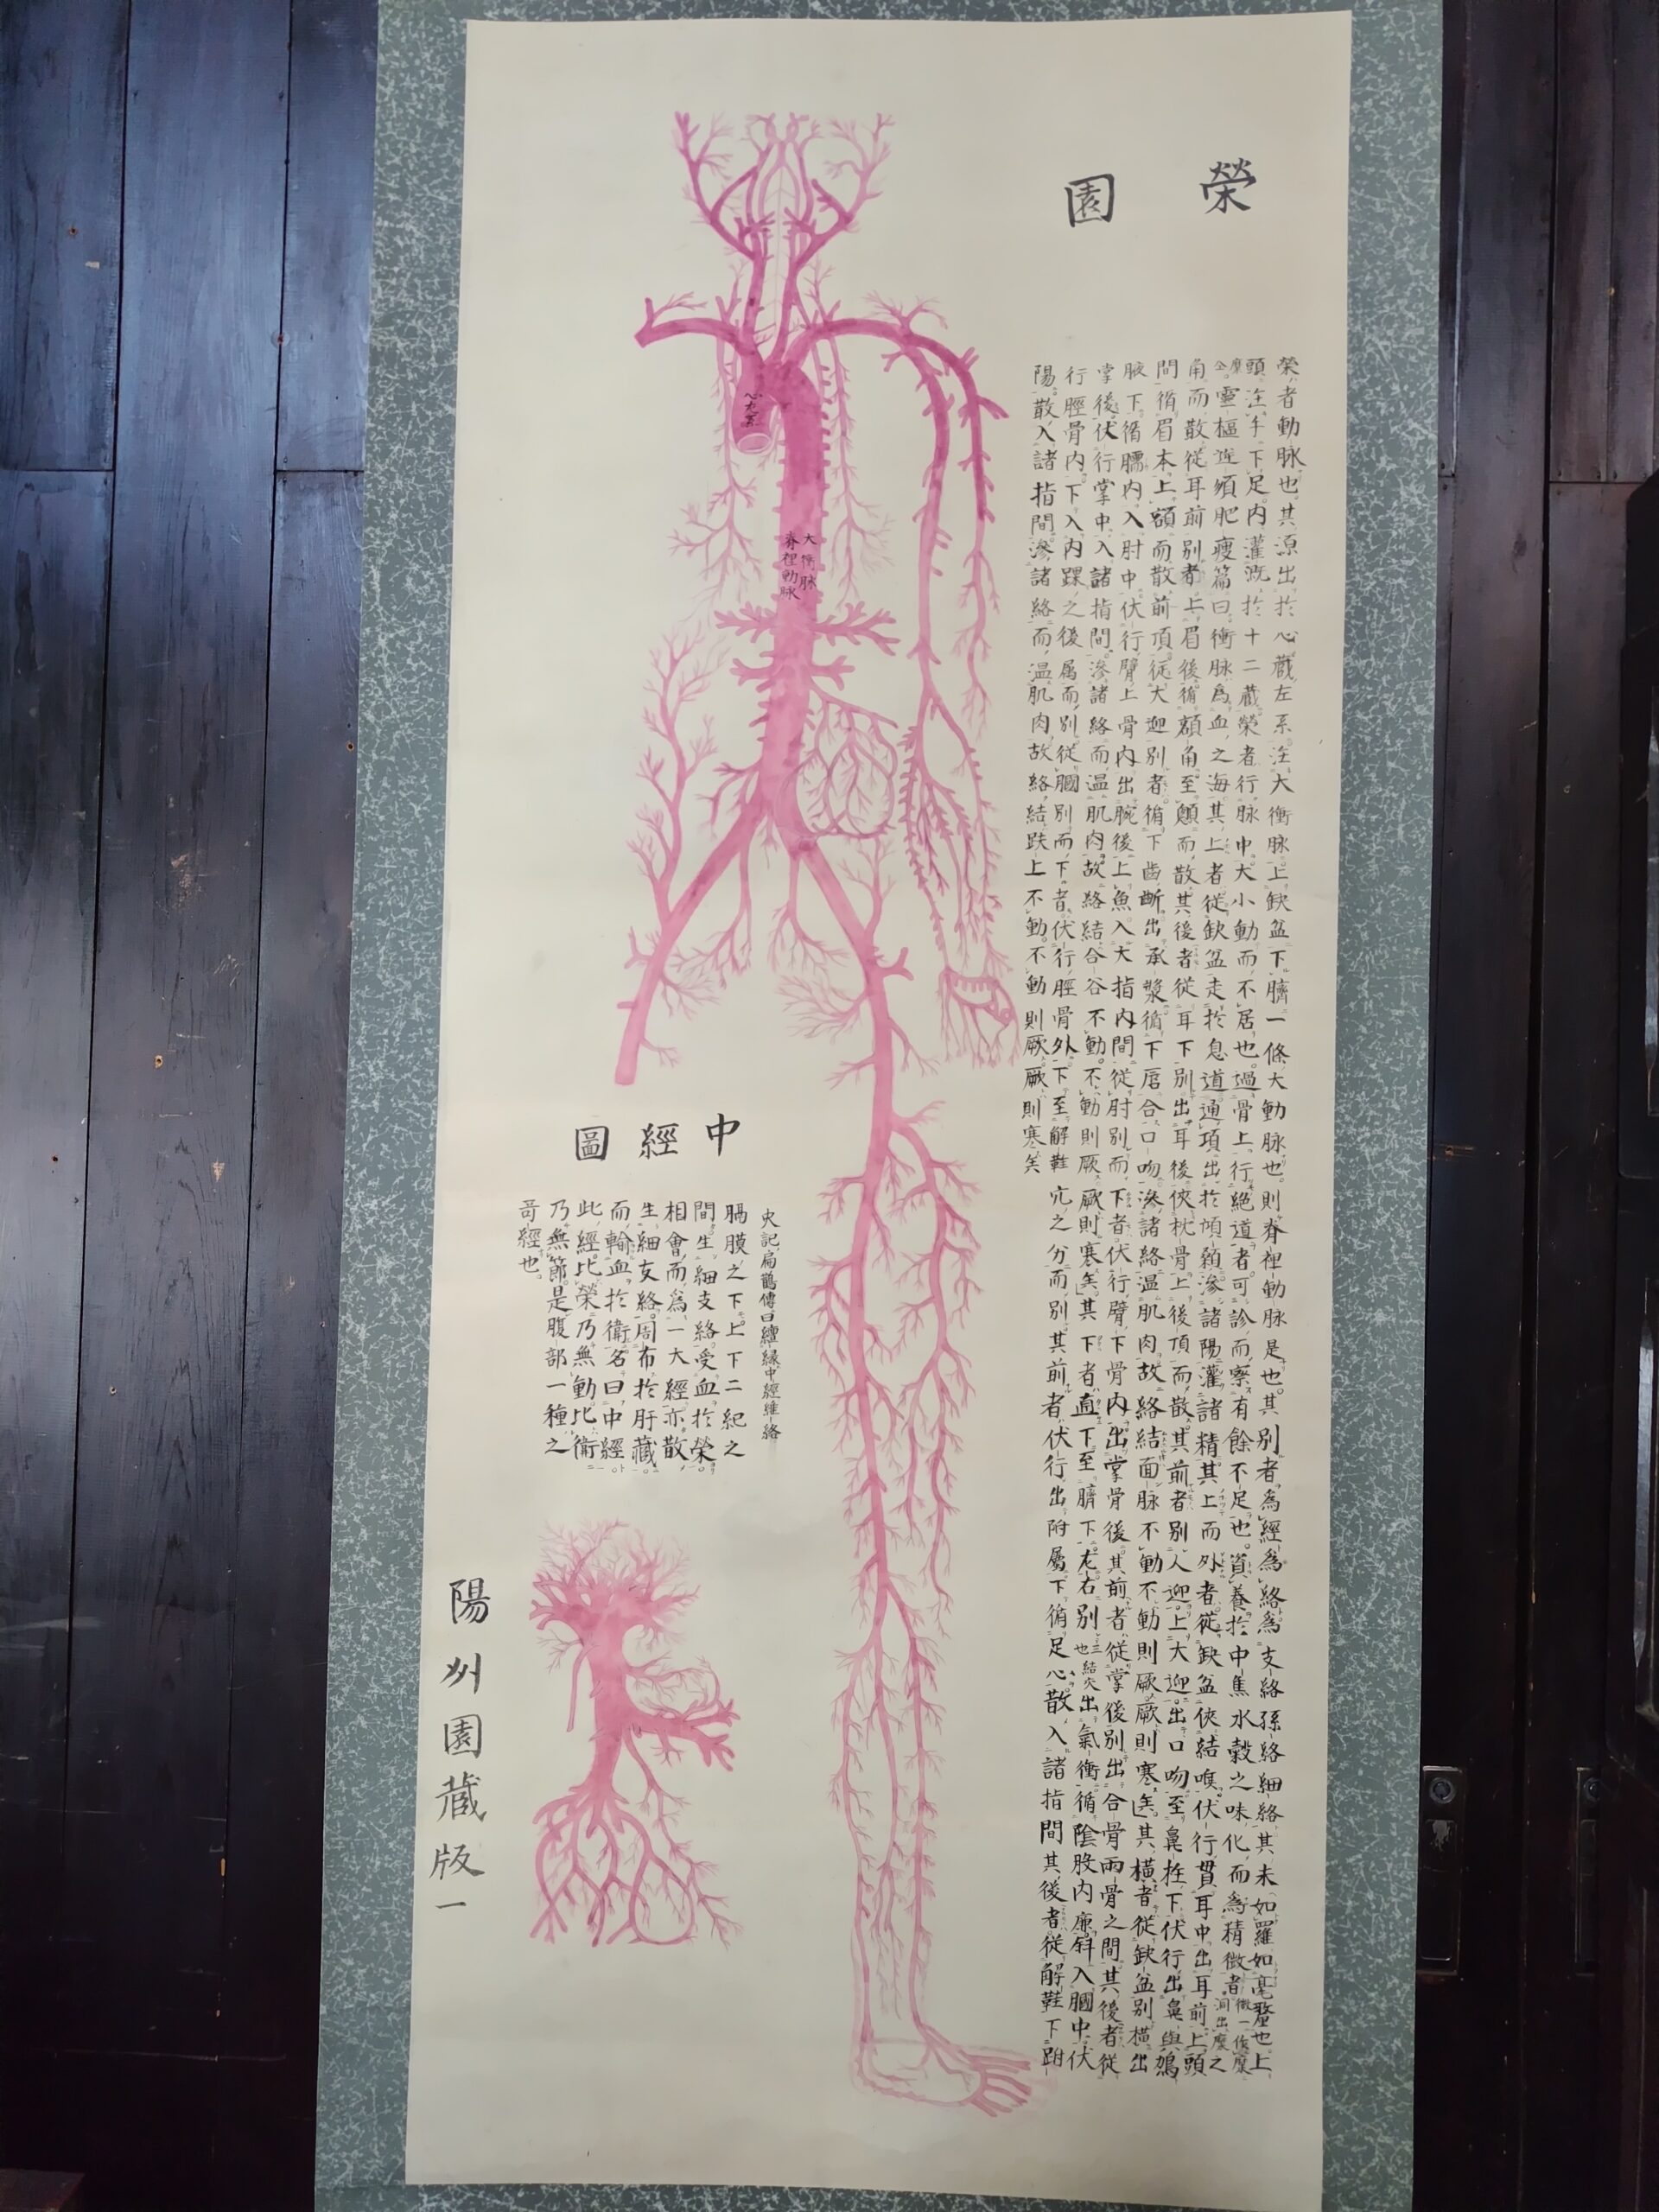 榮園
榮者動脉也其源出於心蔵左系注大衝脉上缺盆下臍一條大動脉也則脊裡動脉是也其別者為經為絡為支絡孫絡細絡其末如羅如毫釐也上
頭注手下足内灌溉於十二蔵榮者行脉中大小動而不居也過骨上行絶道者可診而察有餘不足也資養於中焦水穀之味化而為精微者
靈樞逆順肥瘦篇曰衝脉為血之海其上者從缺盆走於息道通項出於頏顙滲諸陽灌諸精其上而外者從缺盆俠結喉伏行貫耳中出耳前上頭
角而散從耳前別者上眉後循額角至顛而散其後者從耳下別出耳後俠枕骨上後頂而散其前者別人迎上大迎出口吻至鼻柱下伏行出鼻與鳩
間循眉本上額而散前頂從大迎別者循下齒齗出承漿循下唇合口吻滲諸絡温肌肉故絡結面脉不動不動則厥厥則寒矣其横者從缺盆別横出
腋下循臑内入肘中伏行臂上骨内出腕後上魚入大指内間從肘別而下者伏行臂下骨内出掌骨後其前者從掌後別出合骨兩骨之間其後者從
掌後伏行掌中入諸指間滲諸絡而温肌肉故絡結合谷不動不動則厥厥則寒矣其下者直下至臍下左右別出氣衝循陰股内廉斜入膕中伏
行脛骨内下入内踝之後属而別從膕別而下者伏行脛骨外下至解鞋宂之分而別其前者伏行出附屬下循足心散入諸指間其後者從解鞋下跗
陽散入諸指間滲諸絡而温肌肉故絡結趺上不動不動則厥厥則寒矣
心左系
大衝脉
脊裡動脉
中經圖
史記扁鵲傳曰纏縁中經維絡
膈膜之下上下二紀之
間生細支絡受血於榮
相會而為一大經亦散
生細支絡周布於肝蔵
而輸血於衛名曰中經
此經比榮乃無動比衛
乃無節是腹部一種之
奇經也
陽州園蔵版一